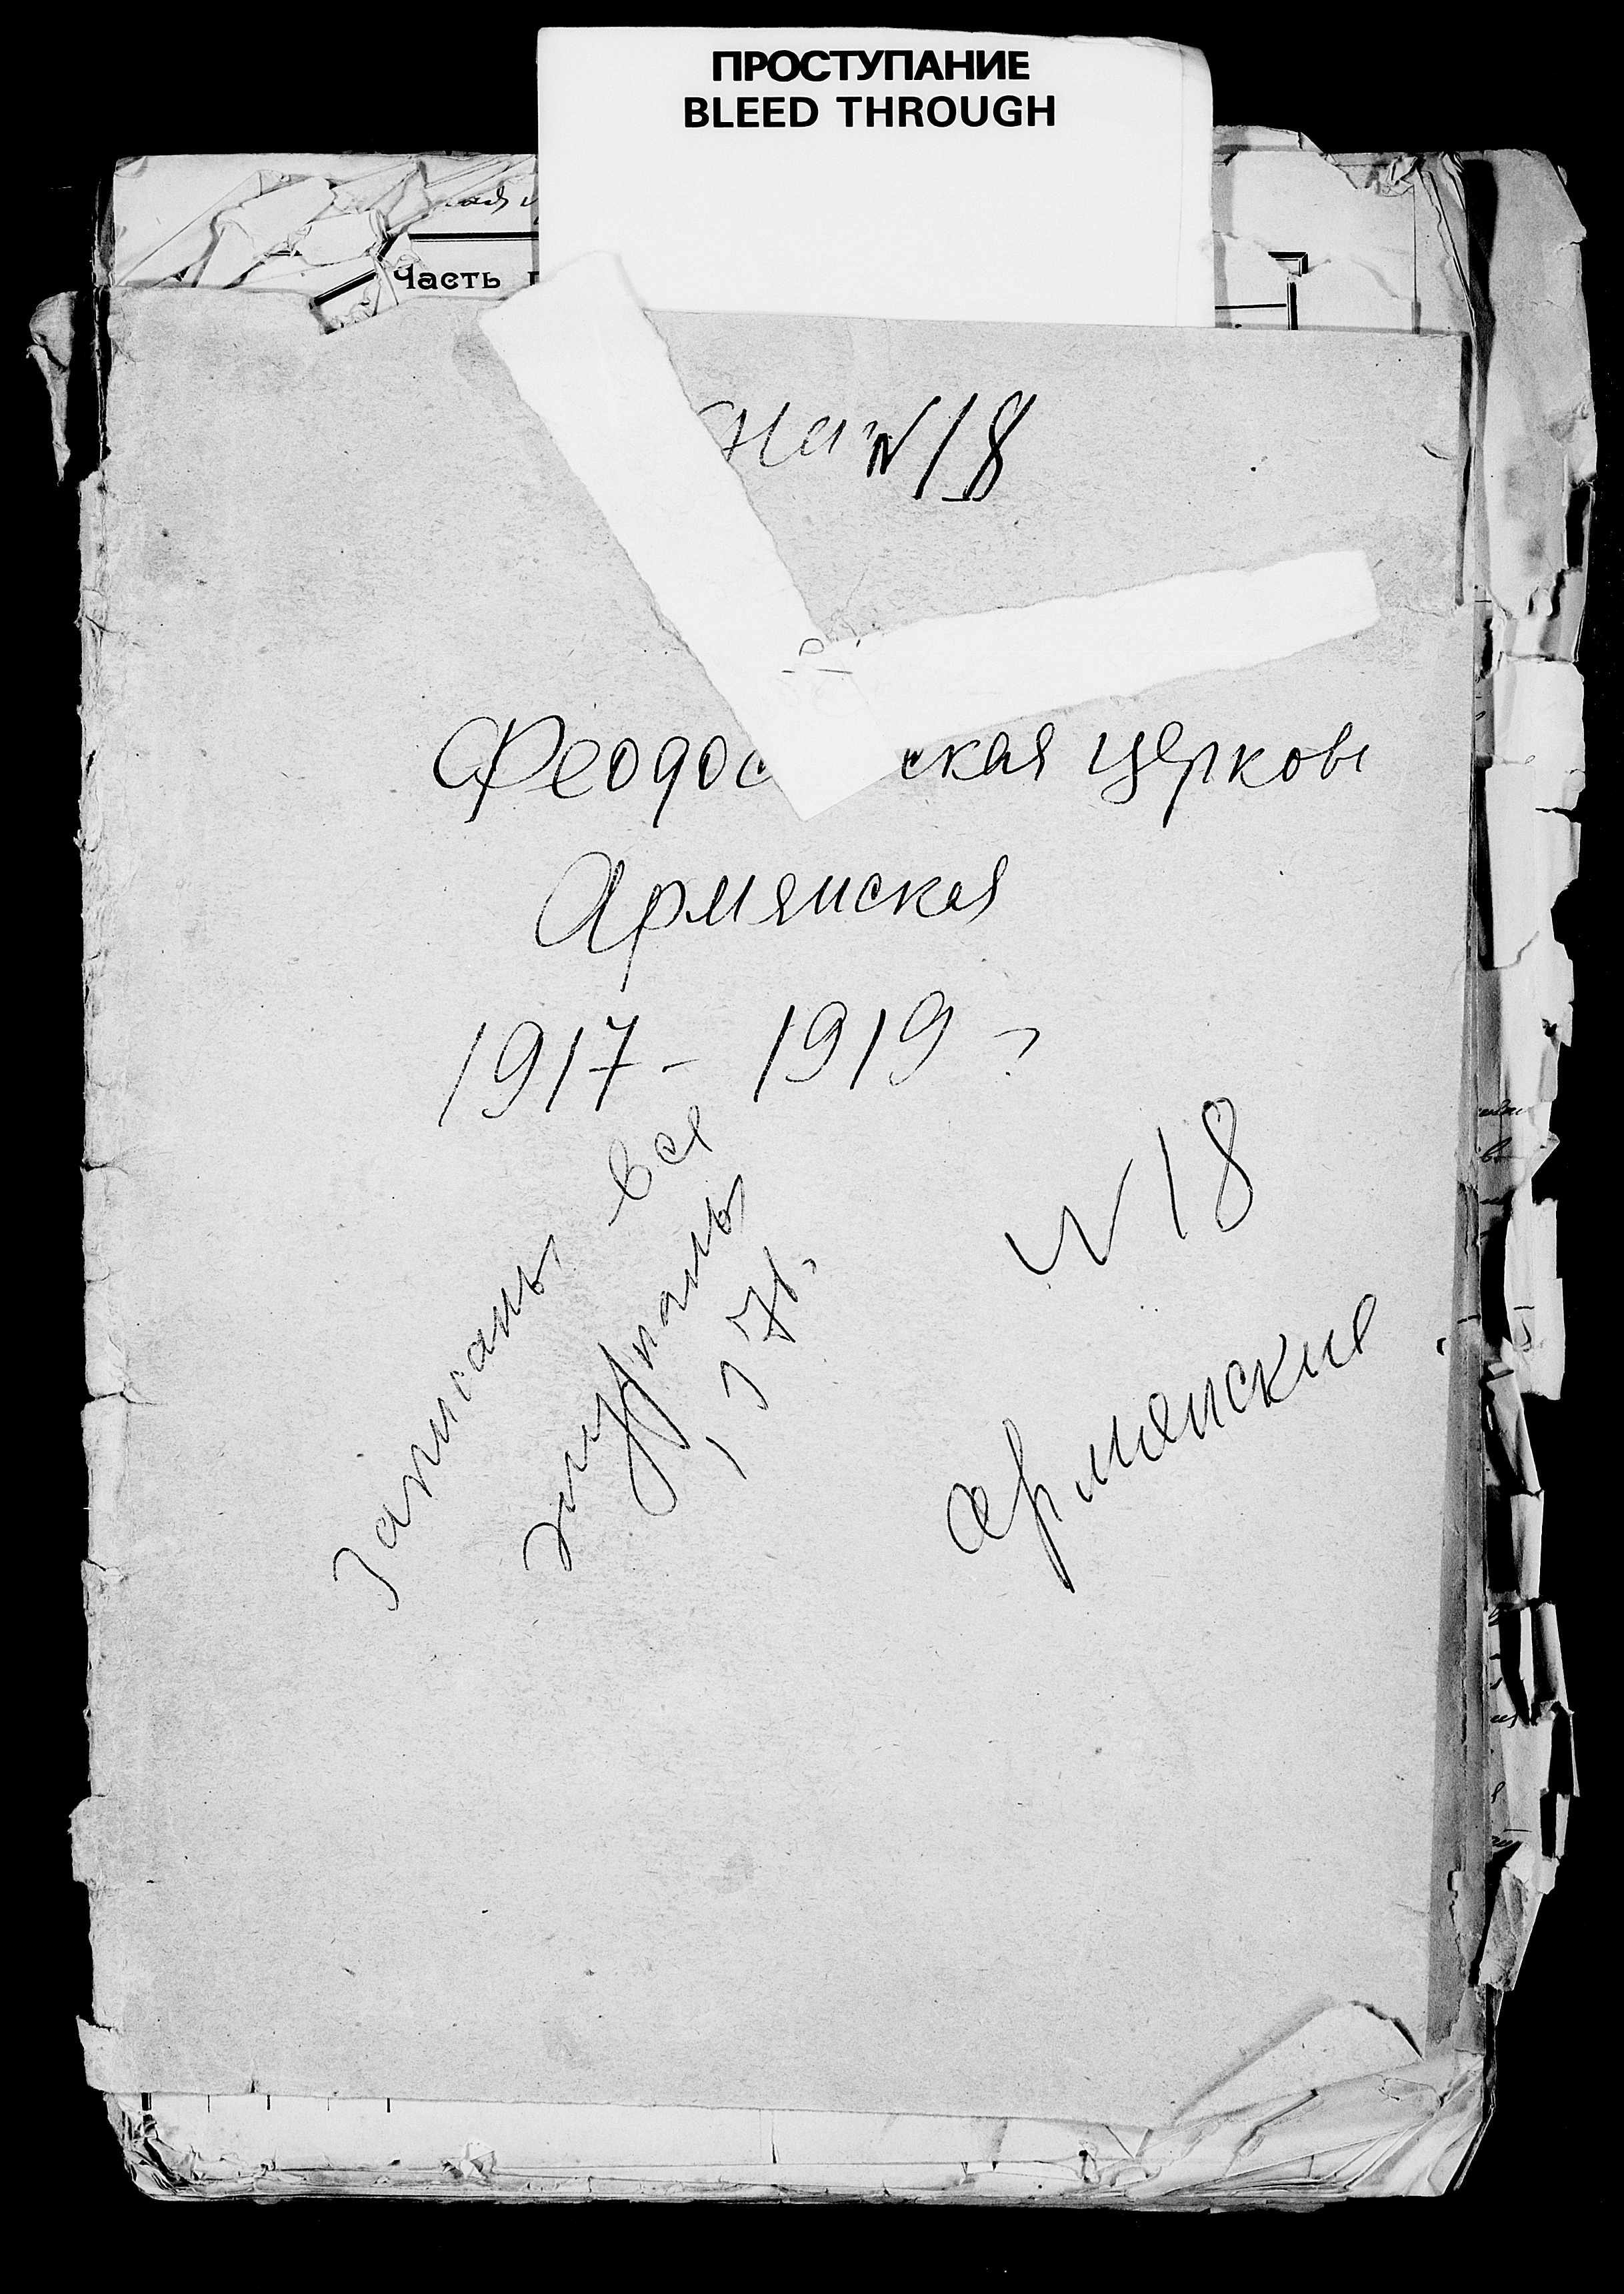 ПРОСТУПАНИЕ
BLEED THROUGH
Часть
№ 18
Феодос ская церковь
Армянская
1917 - 1919 г
Записаны все
журналы
№ 18
армянские